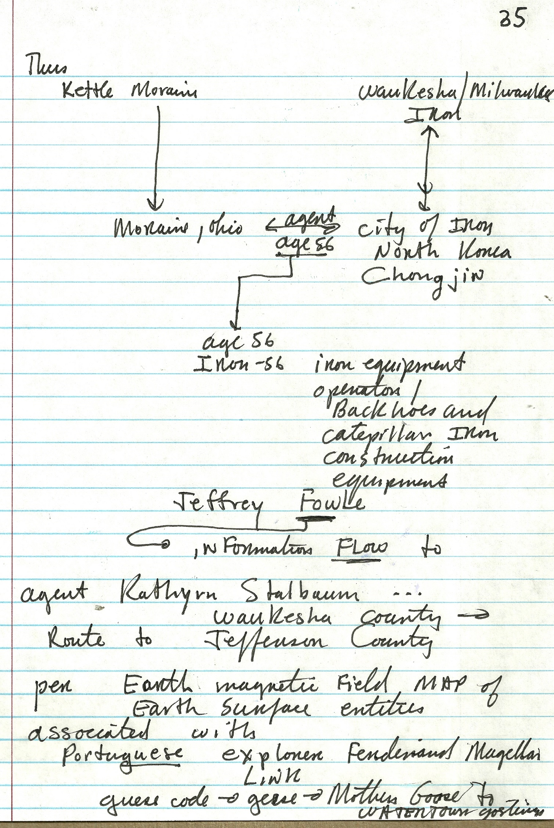 35
Thus
Kettle Moraine
Waukesha/Milwaukee
Iron
Moraine, Ohio
agent
age 56
city of Iron
North Korea
Chongjin
age 56
Iron-56
iron equipment
operator /
Backhoes and
catepillar Iron
construction
equipment
Jeffrey Fowle
, N Formation Flow to
agent Kathyrn Stalbaum ...
Waukesha county →
Route to Jefferson County
per Earth magnetic Field MAP of
Earth Surface entities
associated with
Portuguese explorer Ferdinand Magellan
Link
guese code → geese → Mother Goose to
WATERTOWN